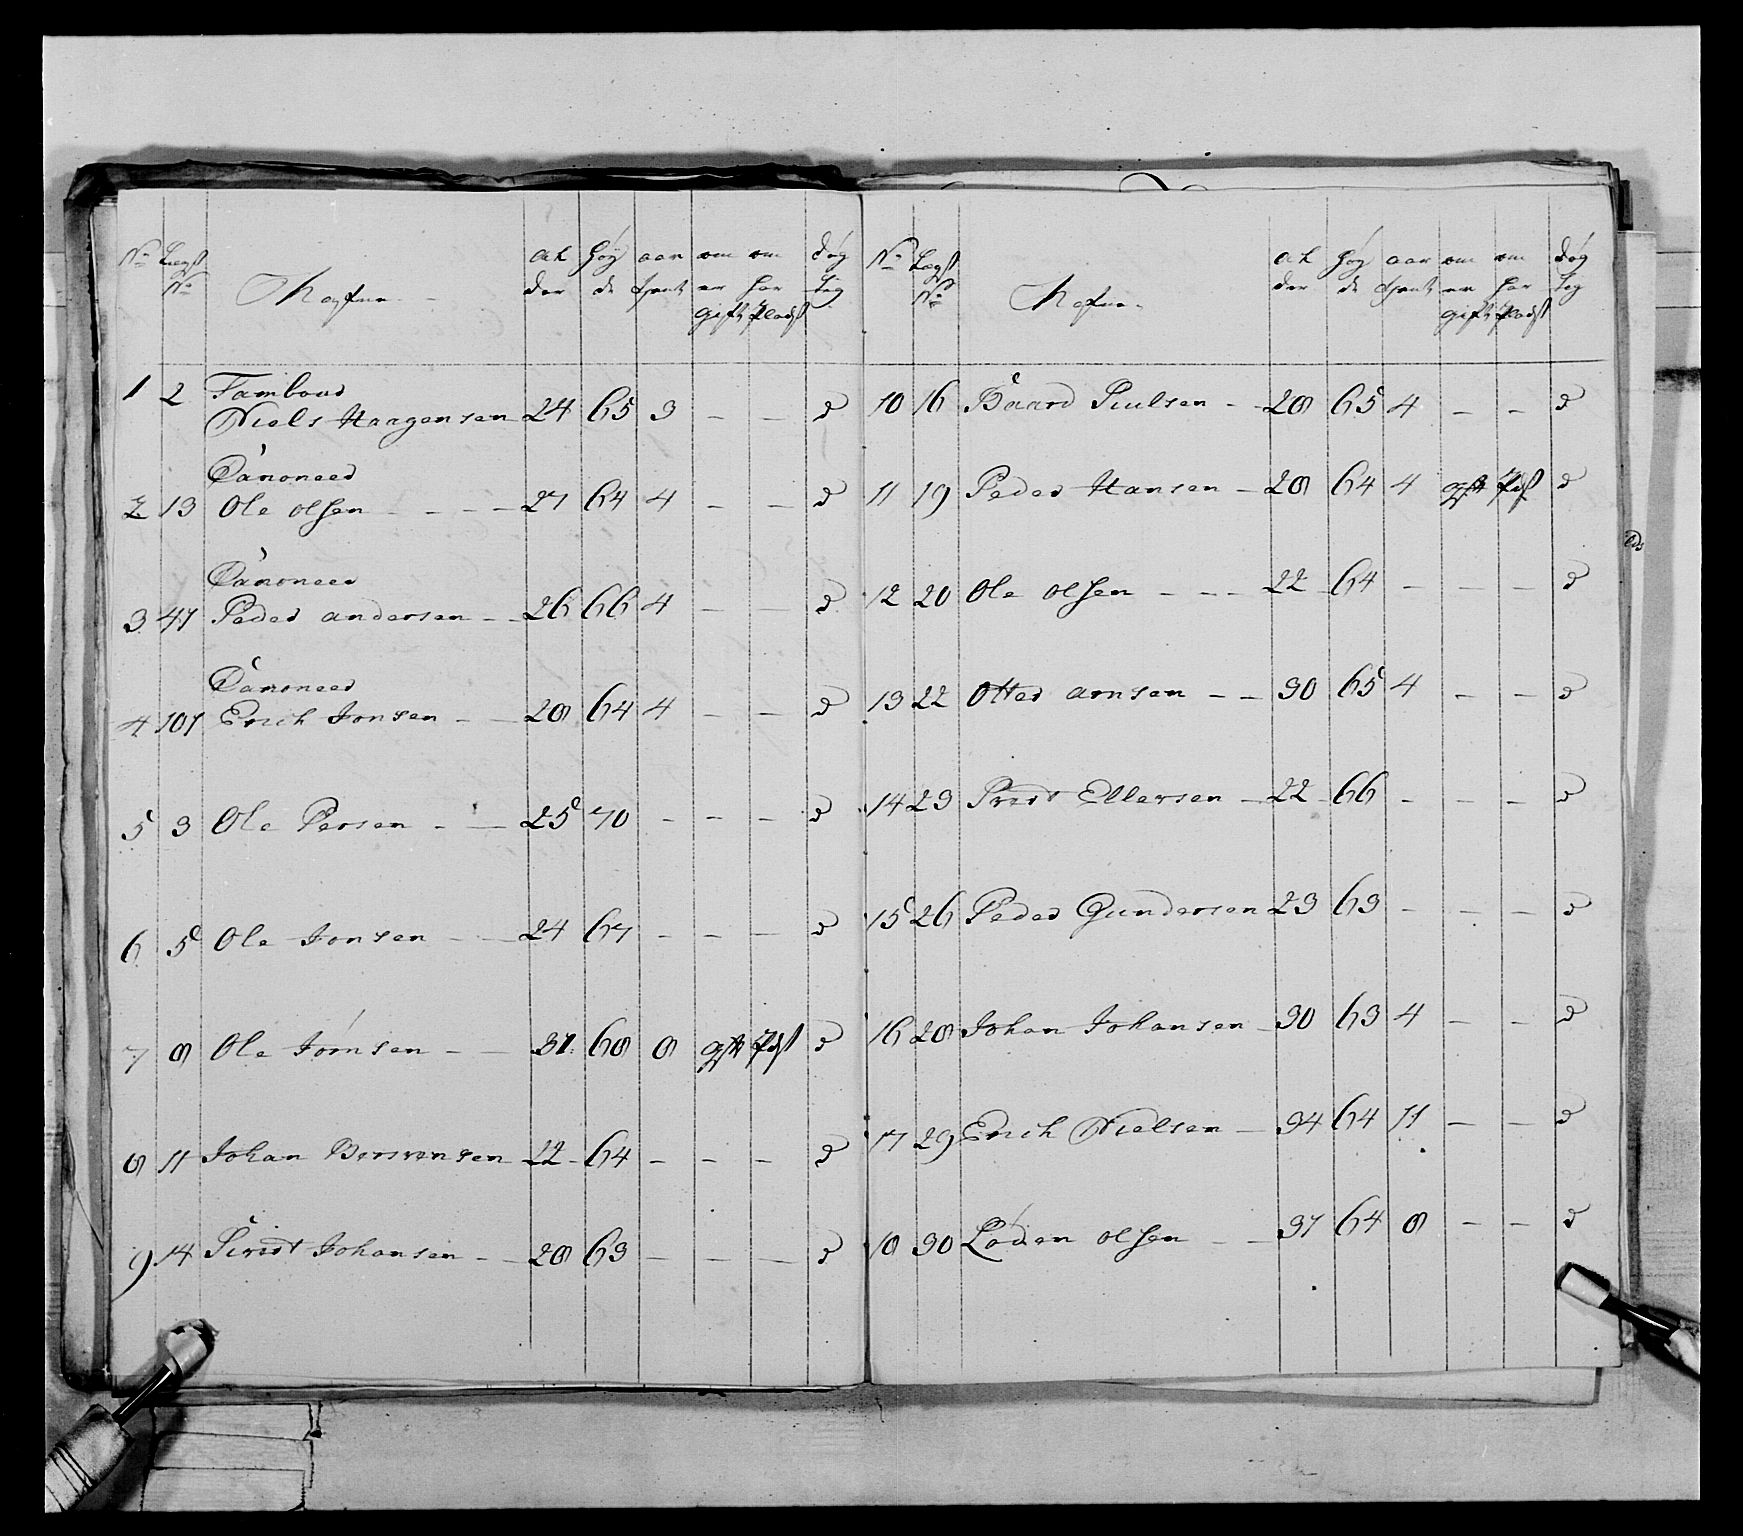 No Lægs No Nafne al der høy de aar tjent om er gift om har Plads døg tig
1 2 Tambour
Niels Haagensen 24 65 3 — — d
Canoneer
2 13 Ole olsen - - - - 27 64 4 — — d
Canoneer
3 47 Peder andersen - - 26 66 4 — — d
Canoneer
4 101 Erich Jonsen - - 28 64 4 — — d
5 3 Ole Persen - — 25 70 - - - d
6 5 Ole Jonsen - — 24 67 - - — d
7 8 Ole Jörnsen - — 31 68 8 gift Pds d
8 11 Johan 22 64 - - - d
9 14 Sivert Johansen - - 28 63 — — — d
No Lægs No Nafne al der høy de aar tjent om er gift om har Plads døg tig
10 16 Baard Paulsen - - 28 65 4 — - d
11 19 Peder Hansen - 28 64 4 gift Pds d
12 20 Ole olsen - - - 22 64 - — — d
13 22 Otter arnsen - - 30 65 4 - - d
14 23 Ellersen - 22 66 - - - d
15 26 Peder Gundersen 23 63 - — - d
16 28 Johan Johansen - 30 63 4 — - d
17 29 Erich Nielsen - 34 64 11 — — d
18 30 Loden olsen - - 37 64 8 — - d